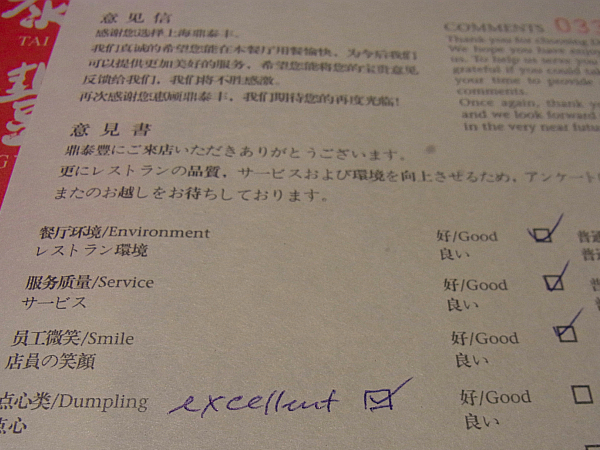 泰
TAI
豐
意 见 信
感谢您选择上海鼎泰丰。
我们真诚的希望您能在本餐厅用餐愉快，为今后我们
可以提供更加美好的服务，希望您能将您的宝贵意见
反馈给我们，我们将不胜感激。
再次感谢您惠顾鼎泰丰，我们期待您的再度光临！
COMMENTS 033
Thank you for choosing D
We hope you have enjoy
us. To help us serve you
grateful if you could tak
your time to provide
comments.
Once again, thank yo
and we look forward
in the very near futur
意 見 書
鼎泰豐にご来店いただきありがとうございます。
更にレストランの品質，サービスおよび環境を向上させるため，アンケート
またのお越しをお待ちしております。
餐厅环境/Environment 好/Good 普通
レストラン環境 良い 普通
服务质量/Service 好/Good 普
サービス 良い
员工微笑/Smile 好/Good
店員の笑顔 良い
点心类/Dumpling excellent 好/Good
点心 良い